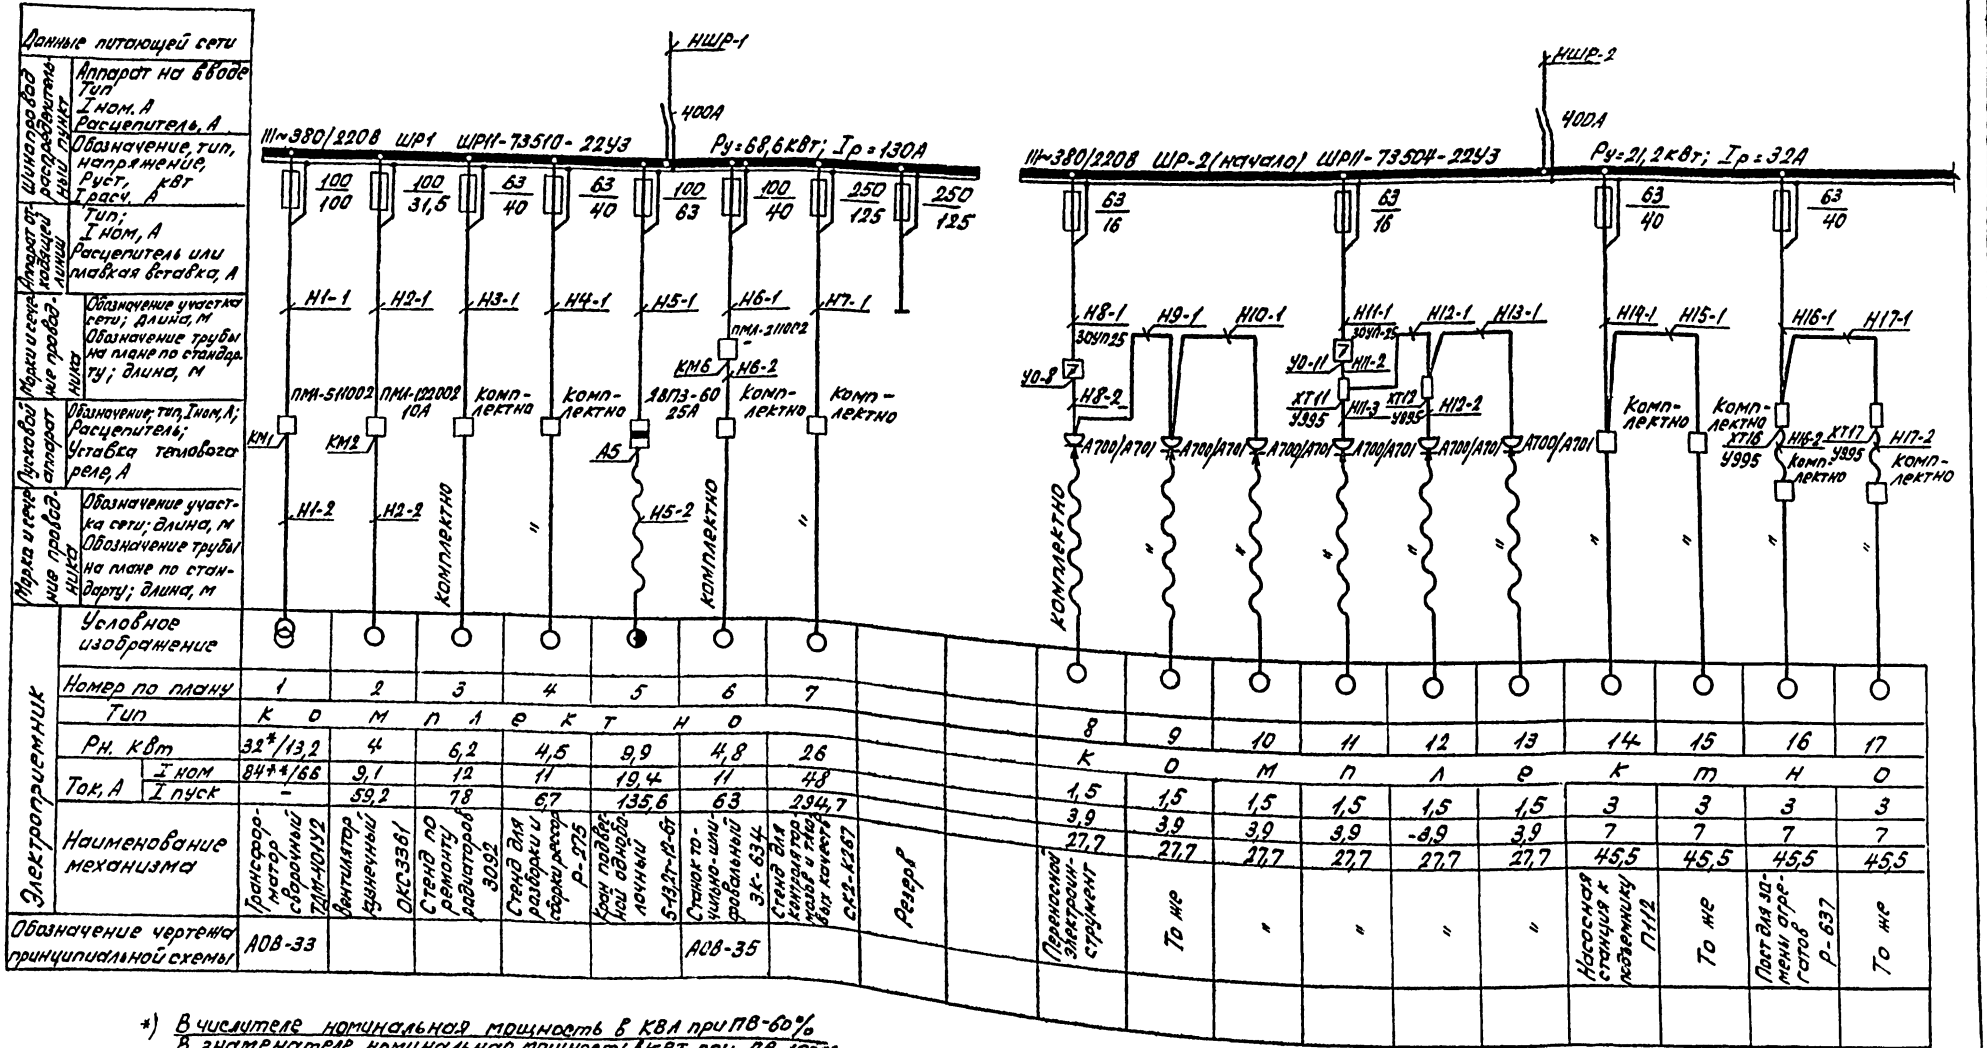 Данные питающей сети
Шинопровод распределительный пункт
Аппарат на вводе
Тип
Iном. А
Расцепитель, А
Обозначение, тип,
напряжение,
Руст, кВт
Iрасч. А
Аппарат отходящей линии
Тип;
Iном, А
Расцепитель или
плавкая вставка, А
Марки и сечение проводника
Обозначение участка
сети; длина, м
Обозначение трубы
на плане по стандар-
ту; длина, м
Пусковой аппарат
Обозначение, тип, Iном, А;
Расцепитель;
Уставка теплового
реле, А
Марка и сечение проводника
Обозначение участ-
ка сети; длина, м
Обозначение трубы
на плане по стан-
дарту; длина, м
НШР-1
400А
III~380/220В ШР1 ШР11-73510-22У3 Ру=68,6кВт; Iр=130А
100/100 100/31,5 63/40 63/40 100/63 100/40 250/125 250/125
Н1-1 Н2-1 Н3-1 Н4-1 Н5-1 Н6-1 Н7-1
ПМЛ-211002
КМ6 Н6-2
ПМЛ-511002 ПМЛ-122002 10А Комп-лектно Комп-лектно ЯВПЗ-60 25А Комп-лектно Комп-лектно
КМ1 КМ2 А5
Н1-2 Н2-2 комплектно " Н5-2 комплектно "
НШР-2
400А
III~380/220В ШР-2(начало) ШР11-73504-22У3 Ру=21,2кВт; Iр=32А
63/16 63/16 63/40 63/40
Н8-1 Н9-1 Н10-1 Н11-1 Н12-1 Н13-1 Н14-1 Н15-1 Н16-1 Н17-1
ЗОУП25 ЗОУП-25
УО-8 УО-11 Н11-2
Н8-2 ХТ11 У995 Н11-3 ХТ12 У995 Н12-2
Комп-лектно Комп-лектно ХТ16 У995 Н16-2 ХТ17 У995 Н17-2
Комп-лектно Комп-лектно
А700/А701 А700/А701 А700/А701 А700/А701 А700/А701 А700/А701
комплектно " " " " " " " " "
Электроприемник
Условное
изображение
Номер по плану 1 2 3 4 5 6 7 8 9 10 11 12 13 14 15 16 17
Тип К о м п л е к т н о К о м п л е к т н о
Рн. кВт 32*/13,2 4 6,2 4,5 9,9 4,8 26 1,5 1,5 1,5 1,5 1,5 1,5 3 3 3 3
Ток, А
I ном 84**/66 9,1 12 11 19,4 11 48 3,9 3,9 3,9 3,9 3,9 3,9 7 7 7 7
I пуск - 59,2 78 67 135,6 63 294,7 27,7 27,7 27,7 27,7 27,7 27,7 45,5 45,5 45,5 45,5
Наименование
механизма
Трансфор-
матор
сварочный
ТДМ-401У2
Вентилятор
кузнечный
ОКС3361
Стенд по
ремонту
радиаторов
3092
Стенд для
разборки и
сборки рессор
Р-275
Кран подвес-
ной однoба-
лочный
Станок то-
чильно-шли-
фовальный
3К-634
Стенд для
контроля тор-
мозов и тяго-
вых качеств
СК2-К267
Резерв
Переносной
электроин-
струмент
То же
"
"
"
"
Насосная
станция к
подъемнику
П112
То же
Пост для за-
мены агре-
гатов
Р-637
То же
Обозначение чертежа
принципиальной схемы АОВ-33 АОВ-35
*) В числителе номинальная мощность в КВА при ПВ-60%